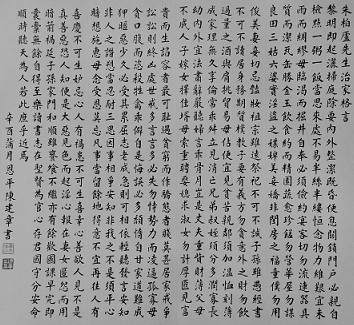 朱柏廬先生治家格言
黎明即起灑掃庭除要內外整潔既昏便息關鎖門戶必親自
檢點一粥一飯當思來處不易半絲半縷恒念物力維艱宜未
雨而綢繆毋臨渴而掘井自奉必須儉約宴客切勿流連器具
質而潔瓦缶勝金玉飲食約而精園蔬愈珍饈勿營華屋勿謀
良田三姑六婆實淫盜之媒婢美妾嬌非閨房之福奴僕勿用
俊美妻妾切忌豔妝祖宗雖遠祭祀不可不誠子孫雖愚經書
不可不讀居身務期簡樸教子要有義方勿貪意外之財勿飲
過量之酒與肩挑貿易毋佔便宜見貧苦親鄰須加溫恤刻薄
成家理無久享倫常乖舛立見消亡兄弟叔姪須分多潤寡長
幼內外宜法肅辭嚴聽婦言乖骨肉豈是丈夫重資財薄父母
不成人子嫁女擇佳壻毋索重聘娶媳求淑女勿計厚奩見富
貴而生諂容者最可恥遇貧窮而作驕態者賤莫甚居家戒爭
訟訟則終凶處世戒多言言多必失勿恃勢力而凌逼孤寡毋
貪口腹而恣殺牲禽乖僻自是悔誤必多頹惰自甘家道難成
狎暱惡少久必受其累屈志老成急則可相依輕聽發言安知
非人之譖愬當忍耐三思因事相爭安知非我之不是須平心
暗想施惠毋念受恩莫忘凡事當留餘地得意不宜再往人有
喜慶不可生妒忌心人有禍患不可生喜幸心善欲人見不是
真善惡恐人知便是大惡見色而起淫心報在妻女匿怨而用
暗箭禍延子孫家門和順雖饔飧不繼亦有餘歡國課早完即
囊橐無餘自得至樂讀書志在聖賢為官心存君國守分安命
順時聽天為人若此庶乎近焉
辛酉蒲月恩平陳建章書